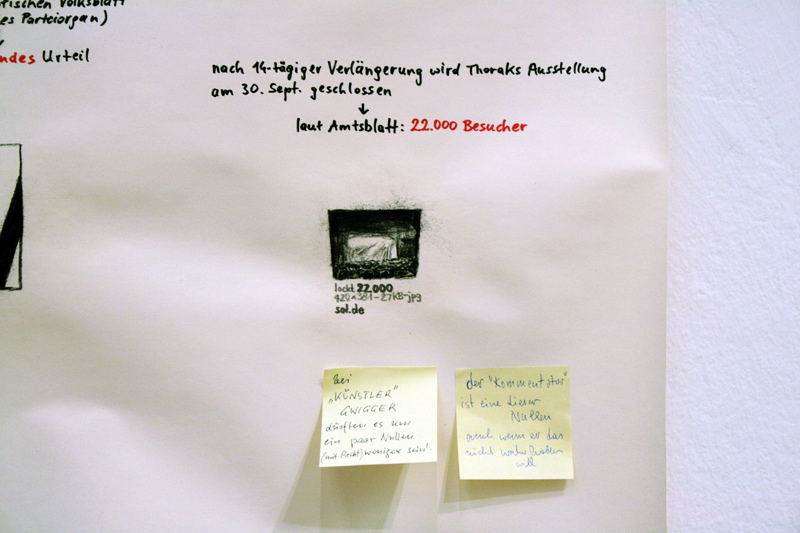 rischen Volksblatt
es Parteiorgan)
ndes Urteil
nach 14-tägiger Verlängerung wird Thoraks Ausstellung
am 30. Sept. geschlossen
laut Amtsblatt: 22.000 Besucher
lockt 22.000
420×381-27KB-jpg
sol.de
bei
„KÜNSTLER"
GWIGGER
dürften es nur
ein paar Nullen
(mit Recht) weniger sein!
der "Kommentator"
ist eine dieser
Nullen
auch wenn er das
nicht
will